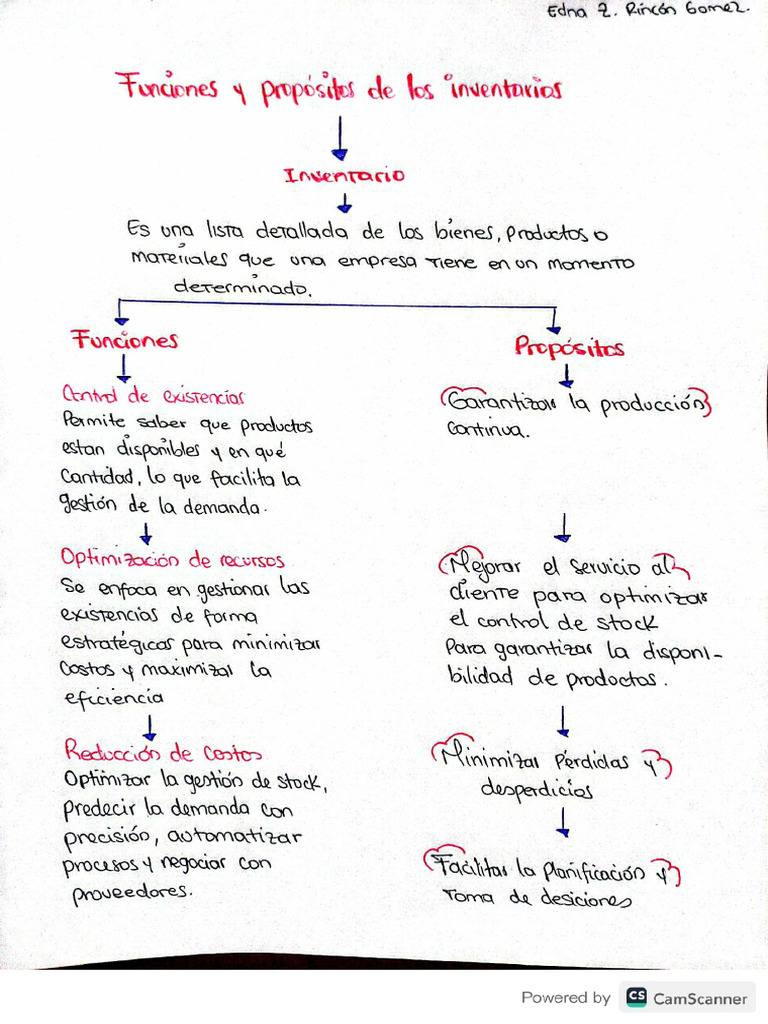 Edna Z. Rincón Gomez.
Funciones y propósitos de los inventarios
Inventario
Es una lista detallada de los bienes, productos o
materiales que una empresa tiene en un momento
determinado.
Funciones
Control de existencias
Permite saber que productos
estan disponibles y en qué
cantidad, lo que facilita la
gestión de la demanda.
Optimización de recursos
Se enfoca en gestionar las
existencias de forma
estratégicas para minimizar
costos y maximizar la
eficiencia
Reducción de costos
Optimizar la gestión de stock,
predecir la demanda con
precisión, automatizar
procesos y negociar con
proveedores.
Propósitos
Garantizar la producción
continua.
Mejorar el servicio al
cliente para optimizar
el control de stock
Para garantizar la disponi-
bilidad de productos.
Minimizar Pérdidas y
desperdicios
Facilitar la planificación y
Toma de desiciones
Powered by CS CamScanner